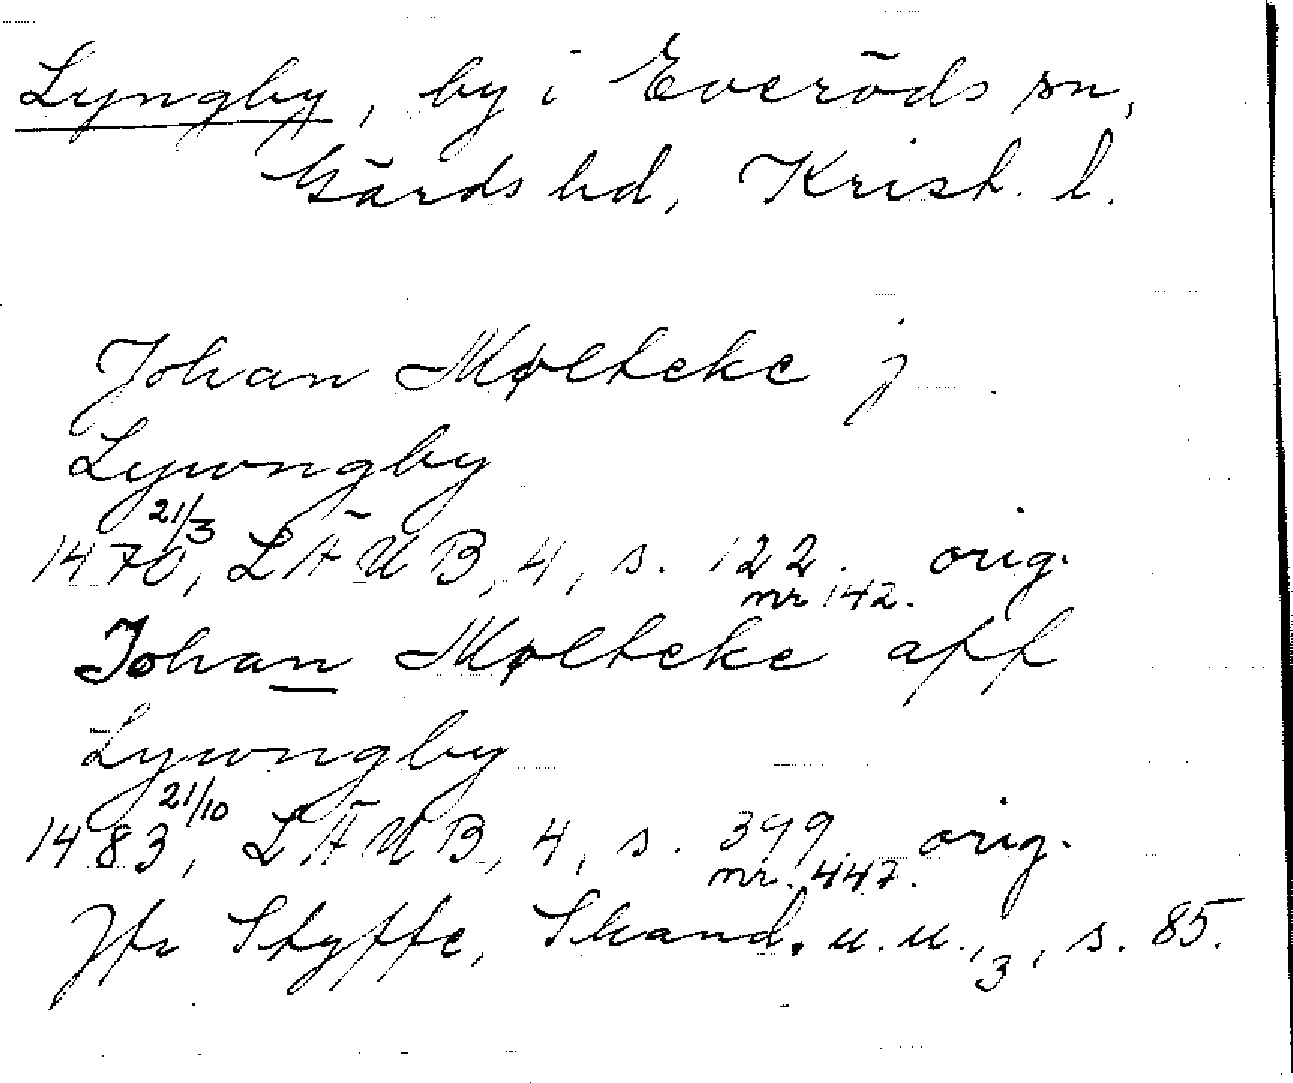 Lyngby, by i Everöds sn,
Gärds hd, Krist. l.
Johan Mølteke j
Lywngby
1470 21/3, LÄUB, 4, s. 122. orig.
nr 142.
Johan Mølteke aff
Lywngby
1483 21/10, LÄUB, 4, s. 399. orig.
nr. 447.
Jfr Styffe, Skand. u. u., 3, s. 85.